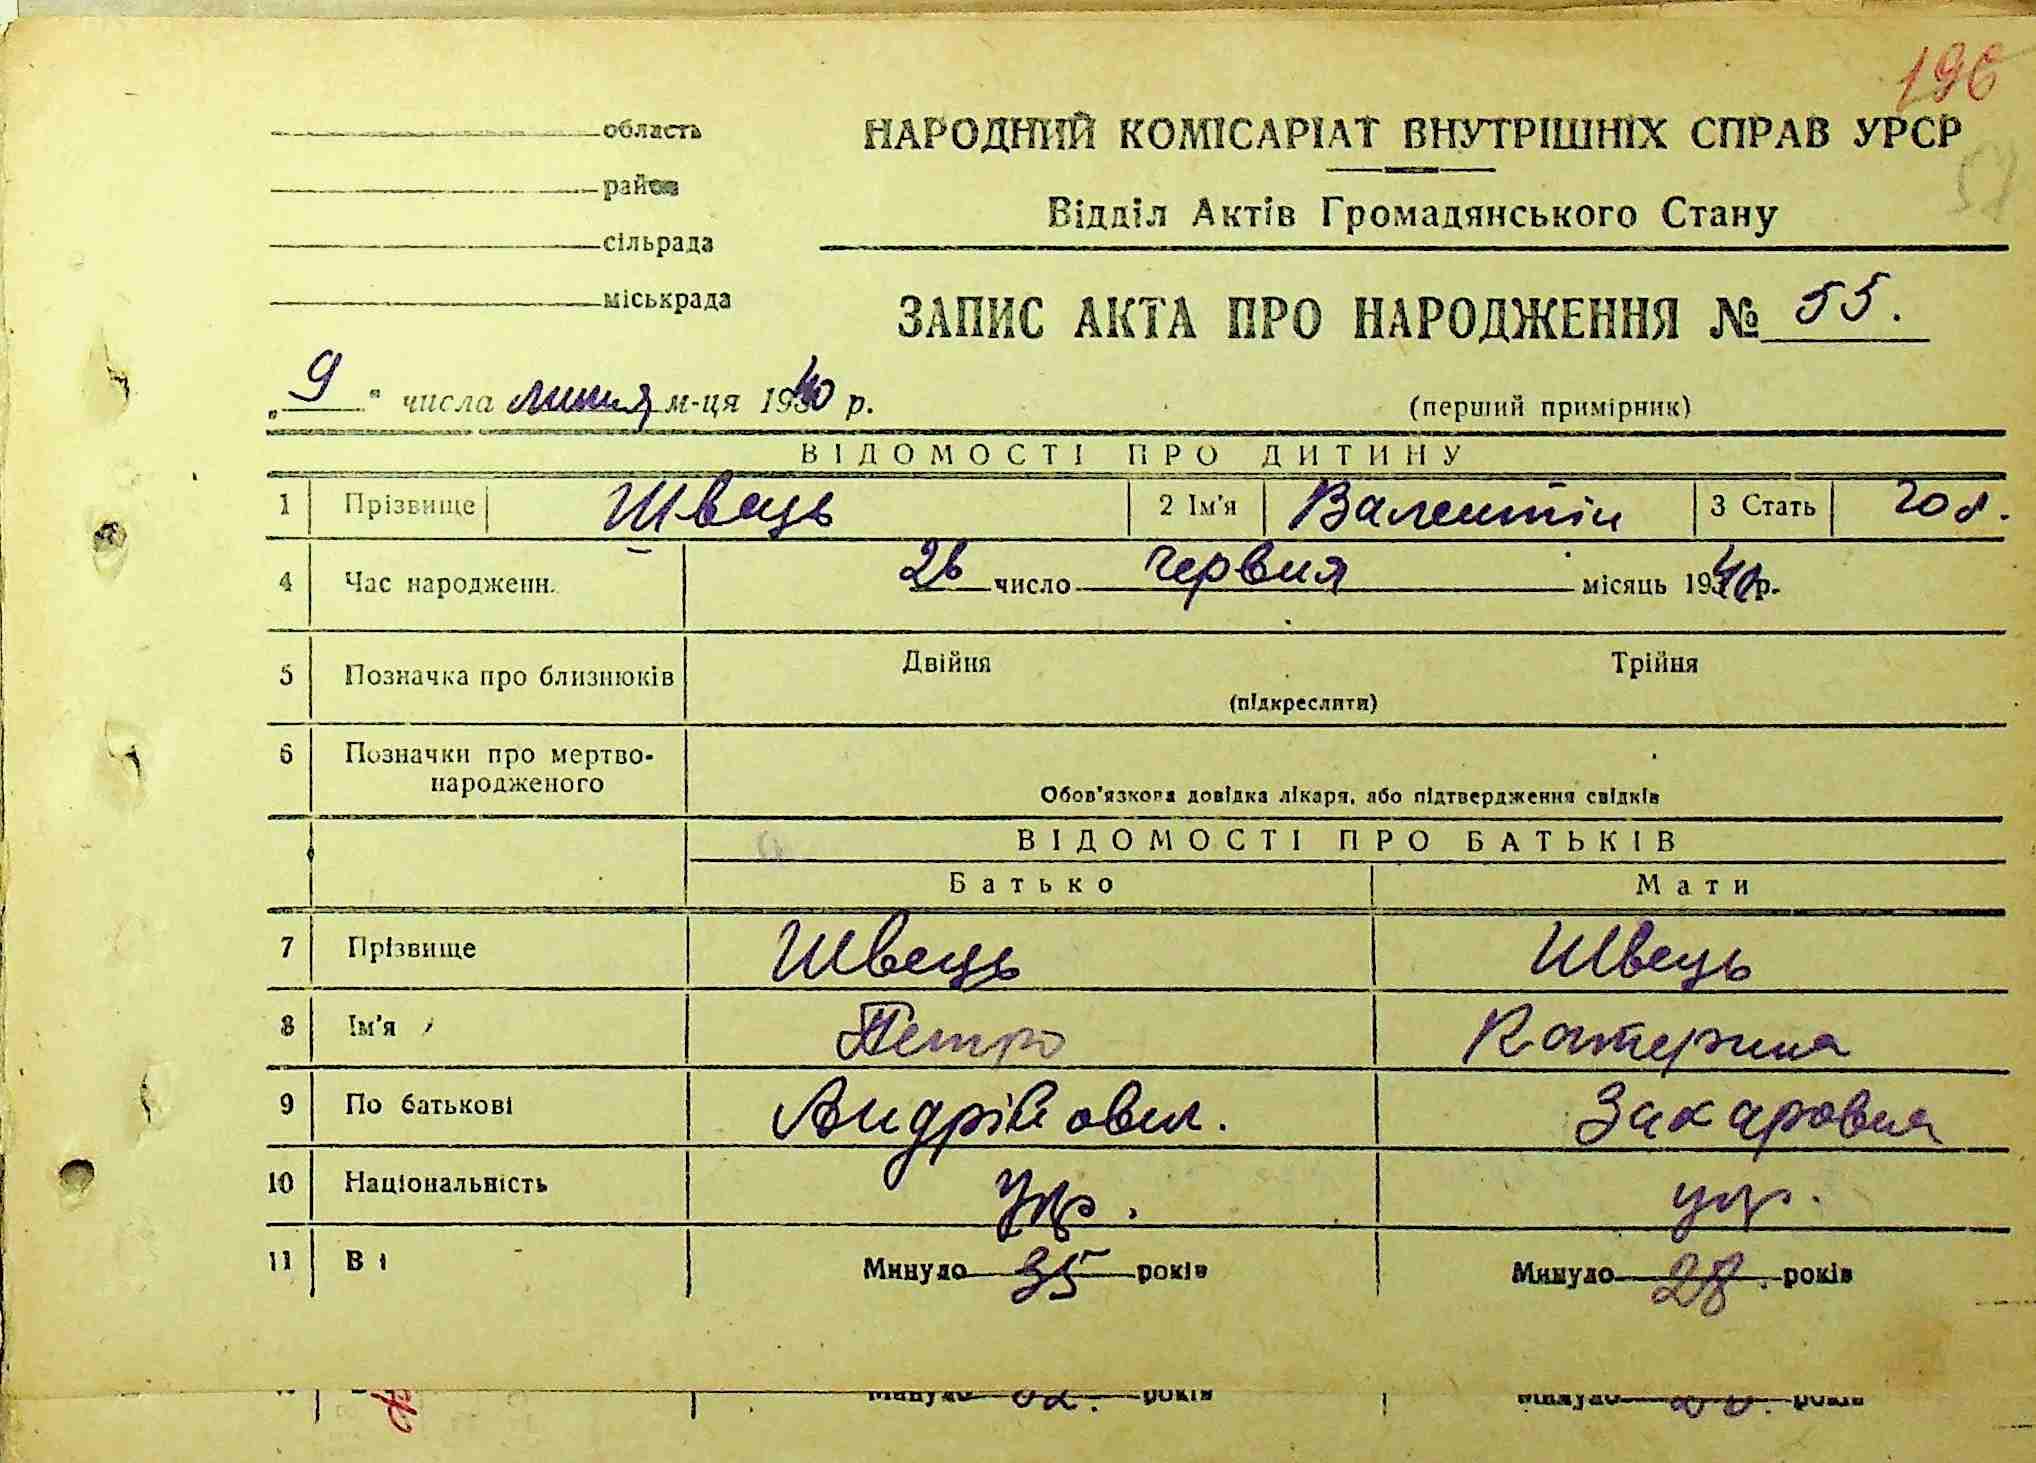 196
область
НАРОДНИЙ КОМІСАРІАТ ВНУТРІШНІХ СПРАВ УРСР
район
Відділ Актів Громадянського Стану
сільрада
міськрада
ЗАПИС АКТА ПРО НАРОДЖЕННЯ № 55.
„9" числа липня м-ця 1940 р.
(перший примірник)
ВІДОМОСТІ ПРО ДИТИНУ
1 Прізвище Швець 2 Ім'я Валентін 3 Стать чол.
4 Час народженн. 26 число червня місяць 1940 р.
5 Позначка про близнюків Двійня Трійня
(підкреслити)
6 Позначки про мертво-
народженого
Обов'язкова довідка лікаря, або підтвердження свідків
ВІДОМОСТІ ПРО БАТЬКІВ
Батько Мати
7 Прізвище Швець Швець
8 Ім'я Петро Катерина
9 По батькові Андрійович. Захаровна
10 Національність Укр. укр.
11 Ві Минуло 35 років Минуло 28. років
Минуло років Минуло років